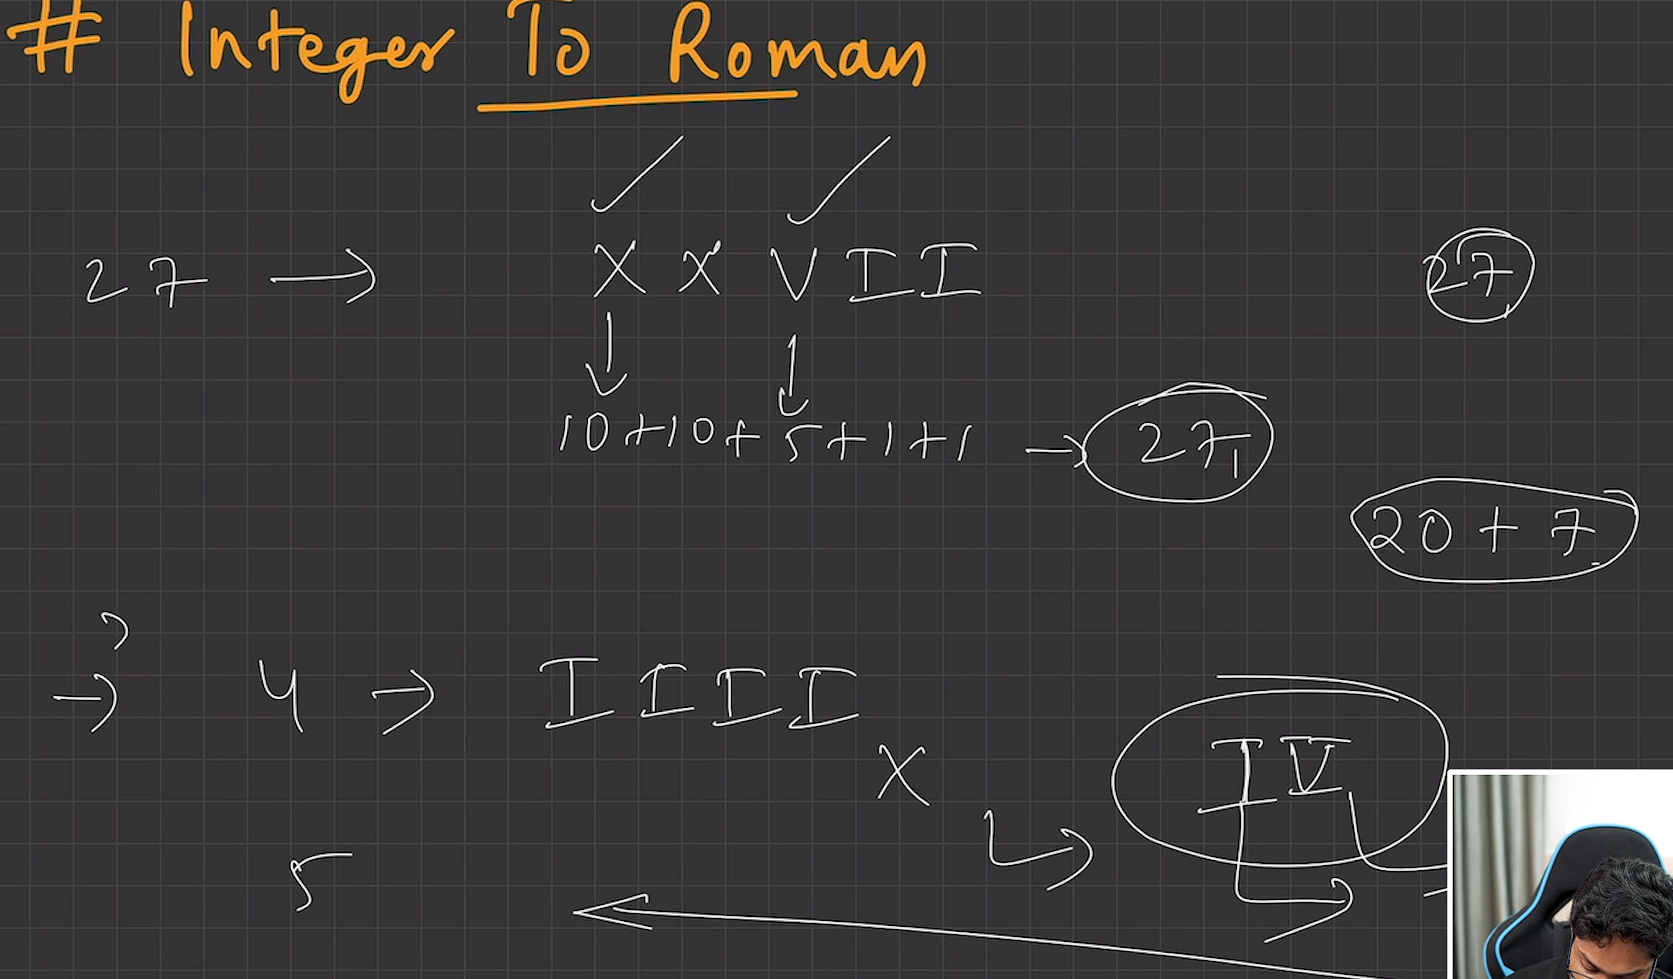 # Integer To Roman
27 → X X V I I
27
10+10+5+1+1 → 27
20 + 7
→ 4 → I I I I
X
IV
5